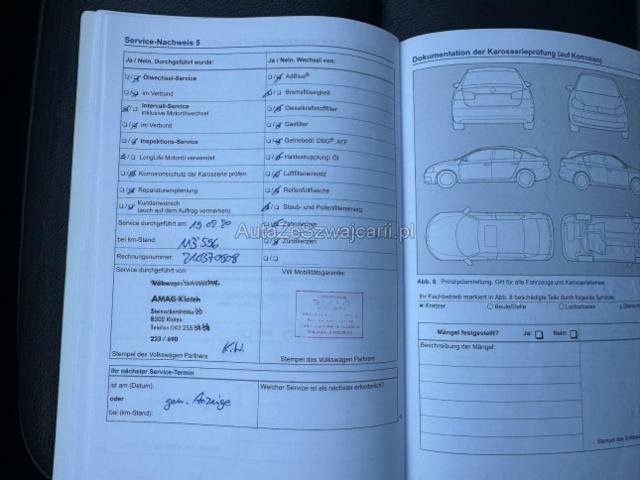 Service-Nachweis 5
Ja / Nein. Durchgeführt wurde:
Ölwechsel-Service
im Verbund
Intervall-Service
inklusive Motorölwechsel
im Verbund
Inspektions-Service
LongLife Motoröl verwendet
Korrosionsschutz der Karosserie prüfen
Reparaturempfehlung
Kundenwunsch
(auch auf dem Auftrag vermerken)
Service durchgeführt am: 19.08.20
bei km-Stand: 113 556
Rechnungsnummer:
Service durchgeführt von:
AMAG Kloten
8302 Kloten
Telefon 043 255
233 / 690
K.W.
Stempel des Volkswagen Partners
Ja / Nein. Wechsel von:
AdBlue®
Bremsflüssigkeit
Dieselkraftstofffilter
Gasfilter
Getriebeöl: DSG®, ATF
Haldexkupplung: Öl
Luftfiltereinsatz
Reifenfüllflasche
Staub- und Pollenfiltereinsatz
Zahnriemen
Zündkerzen
VW Mobilitätsgarantie:
Stempel des Volkswagen Partners
Ihr nächster Service-Termin
ist am (Datum):
oder
bei (km-Stand):
gem. Anzeige
Welcher Service ist als nächster erforderlich?
AutaZeSzwajcarii.pl
Dokumentation der Karosserieprüfung (auf Korrosion)
Abb. 8 Prinzipdarstellung. Gilt für alle Fahrzeuge und Karosserieformen.
Ihr Fachbetrieb markiert in Abb. 8 beschädigte Teile durch folgende Symbole:
× Kratzer ○ Beule/Delle □ Lackschaden
Mängel festgestellt? Ja: Nein:
Beschreibung der Mängel: